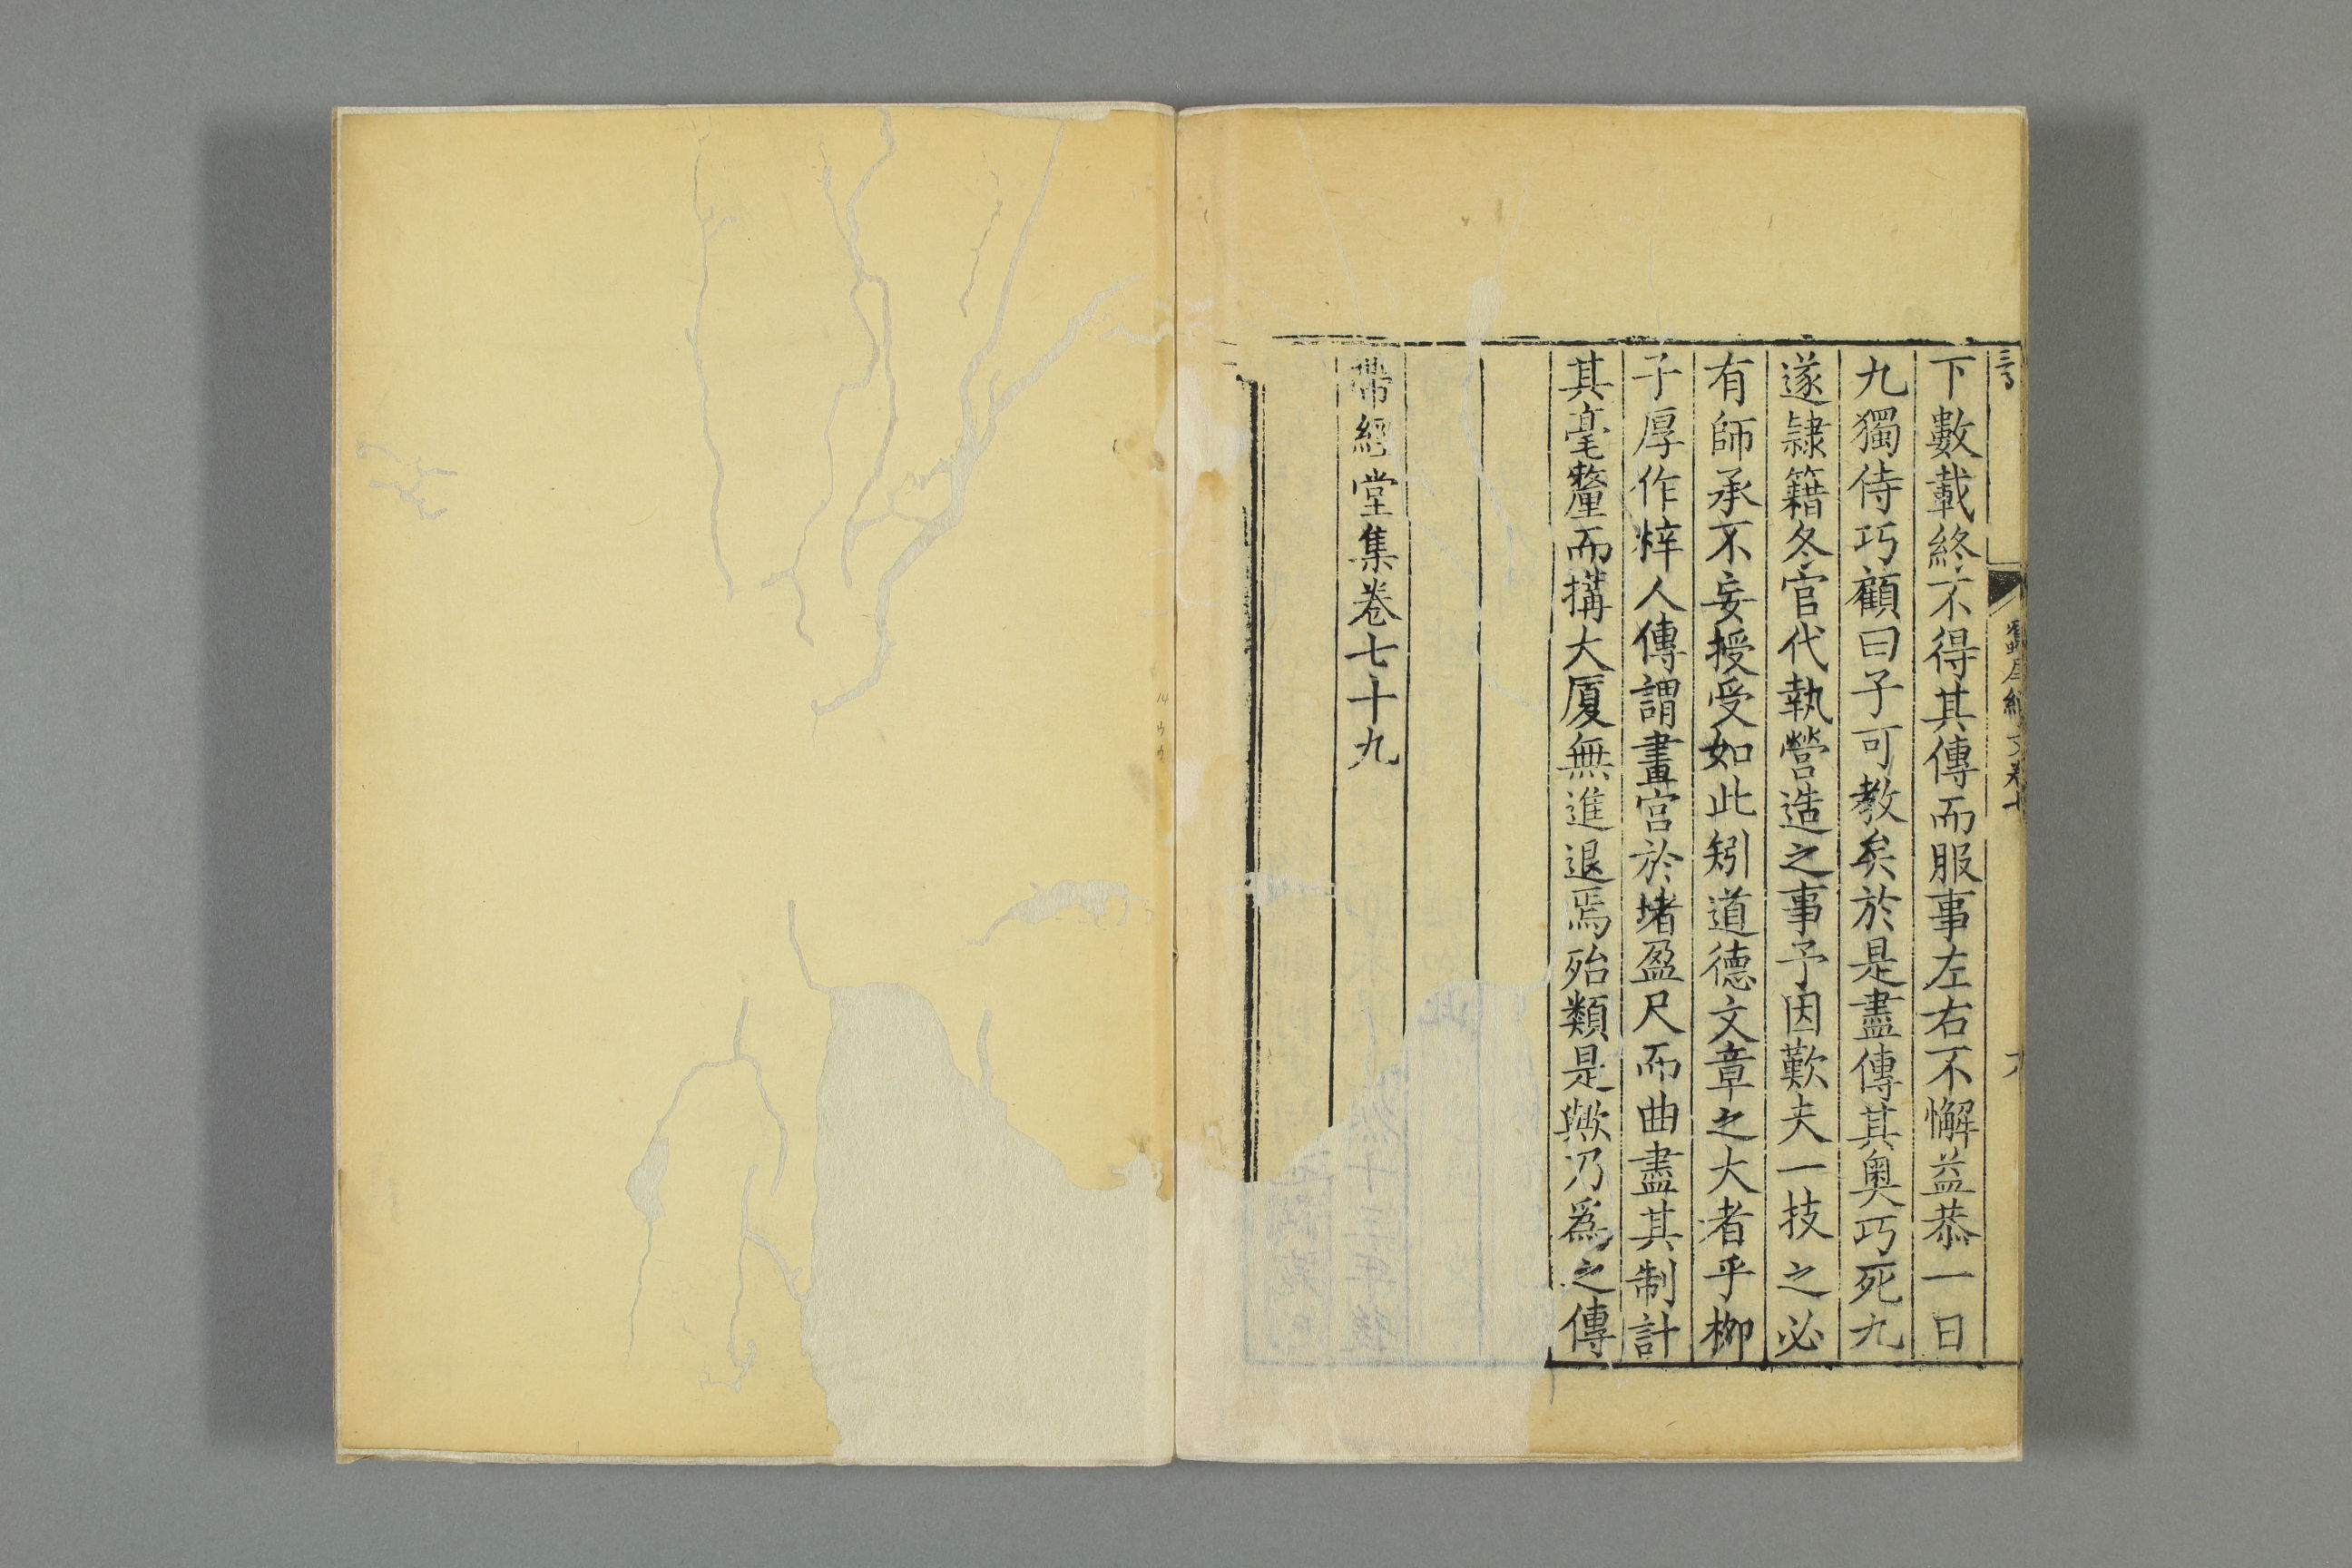 下數載終不得其傳而服事左右不懈益恭一日
九獨侍巧顧曰子可教矣於是盡傳其奧巧死九
遂隷籍冬官代執營造之事予因歎夫一技之必
有師承不妄授受如此矧道德文章之大者乎柳
子厚作梓人傳謂畫宮於堵盈尺而曲盡其制計
其毫釐而搆大厦無進退焉殆類是歟乃爲之傳
帶經堂集卷七十九